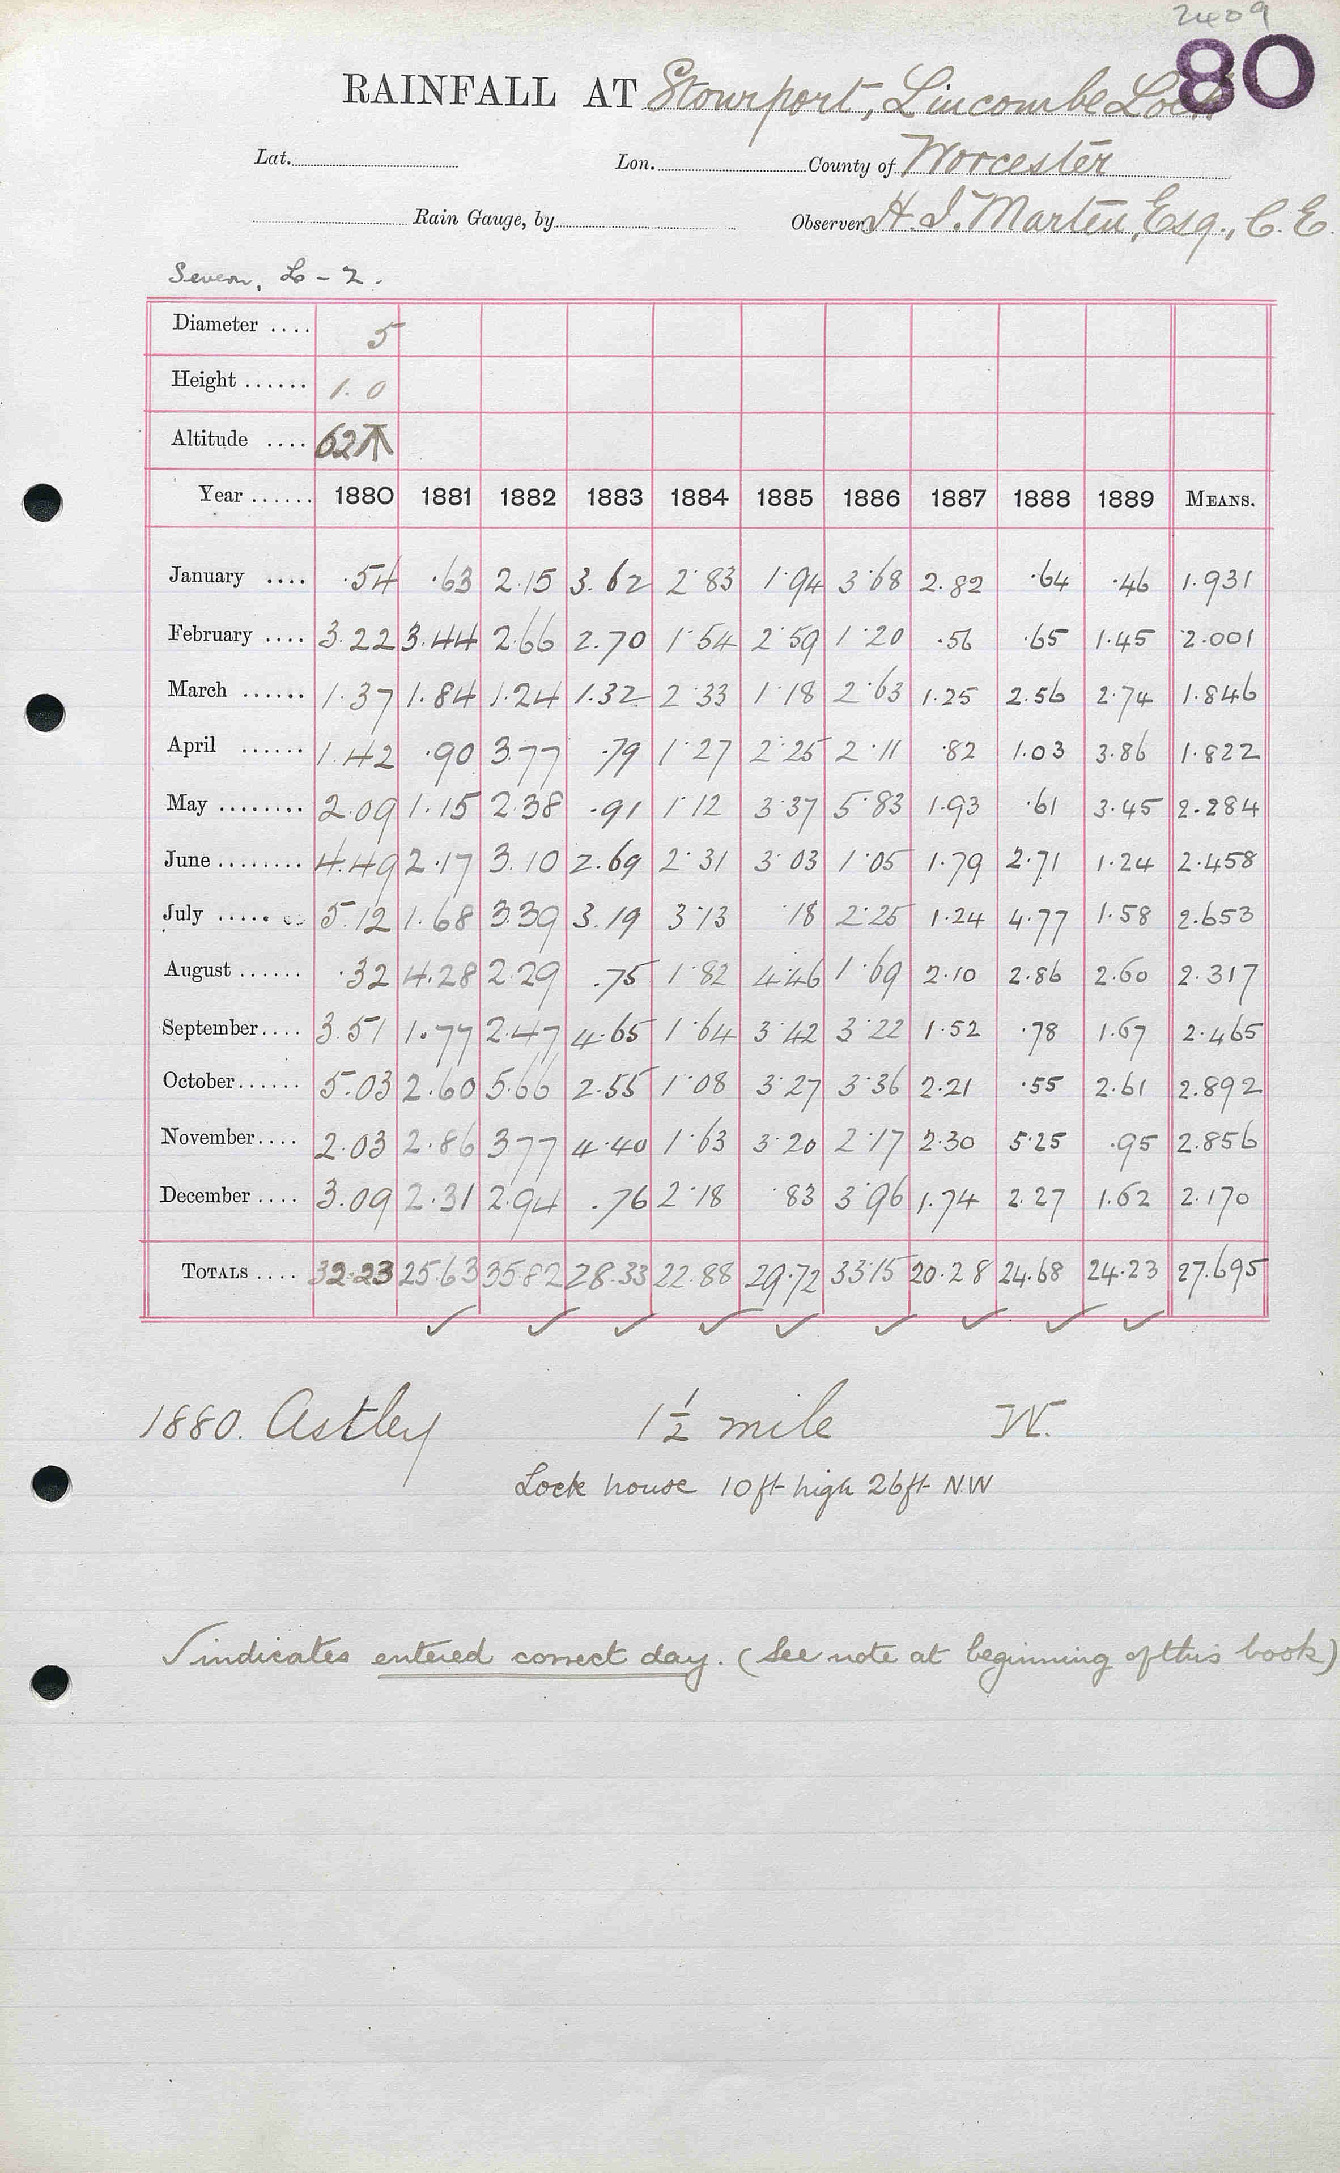 2409
80
RAINFALL AT Stourport, Lincombe Lock
Lat. Lon. County of Worcester
Rain Gauge, by Observer H. J. Marten, Esq., C.E.
Severn, L - 2.
Diameter .... 5
Height ...... 1.0
Altitude .... 62
Year ...... 1880 1881 1882 1883 1884 1885 1886 1887 1888 1889 MEANS.
January .... .54 .63 2.15 3.62 2.83 1.94 3.68 2.82 .64 .46 1.931
February .... 3.22 3.44 2.66 2.70 1.54 2.59 1.20 .56 .65 1.45 2.001
March ...... 1.37 1.84 1.24 1.32 2.33 1.18 2.63 1.25 2.56 2.74 1.846
April ...... 1.42 .90 3.77 .79 1.27 2.25 2.11 .82 1.03 3.86 1.822
May ........ 2.09 1.15 2.38 .91 1.12 3.37 5.83 1.93 .61 3.45 2.284
June ........ 4.49 2.17 3.10 2.69 2.31 3.03 1.05 1.79 2.71 1.24 2.458
July ........ 5.12 1.68 3.39 3.19 3.13 .18 2.25 1.24 4.77 1.58 2.653
August ...... .32 4.28 2.29 .75 1.82 4.46 1.69 2.10 2.86 2.60 2.317
September .... 3.51 1.77 2.47 4.65 1.64 3.42 3.22 1.52 .78 1.67 2.465
October ...... 5.03 2.60 5.66 2.55 1.08 3.27 3.36 2.21 .55 2.61 2.892
November .... 2.03 2.86 3.77 4.40 1.63 3.20 2.17 2.30 5.25 .95 2.856
December .... 3.09 2.31 2.94 .76 2.18 .83 3.96 1.74 2.27 1.62 2.170
TOTALS .... 32.23 25.63 35.82 28.33 22.88 29.72 33.15 20.28 24.68 24.23 27.695
✓ ✓ ✓ ✓ ✓ ✓ ✓ ✓ ✓
1880. Astley 1½ mile W.
Lock house 10ft high 26ft NW
✓ indicates entered correct day. (See note at beginning of this book)